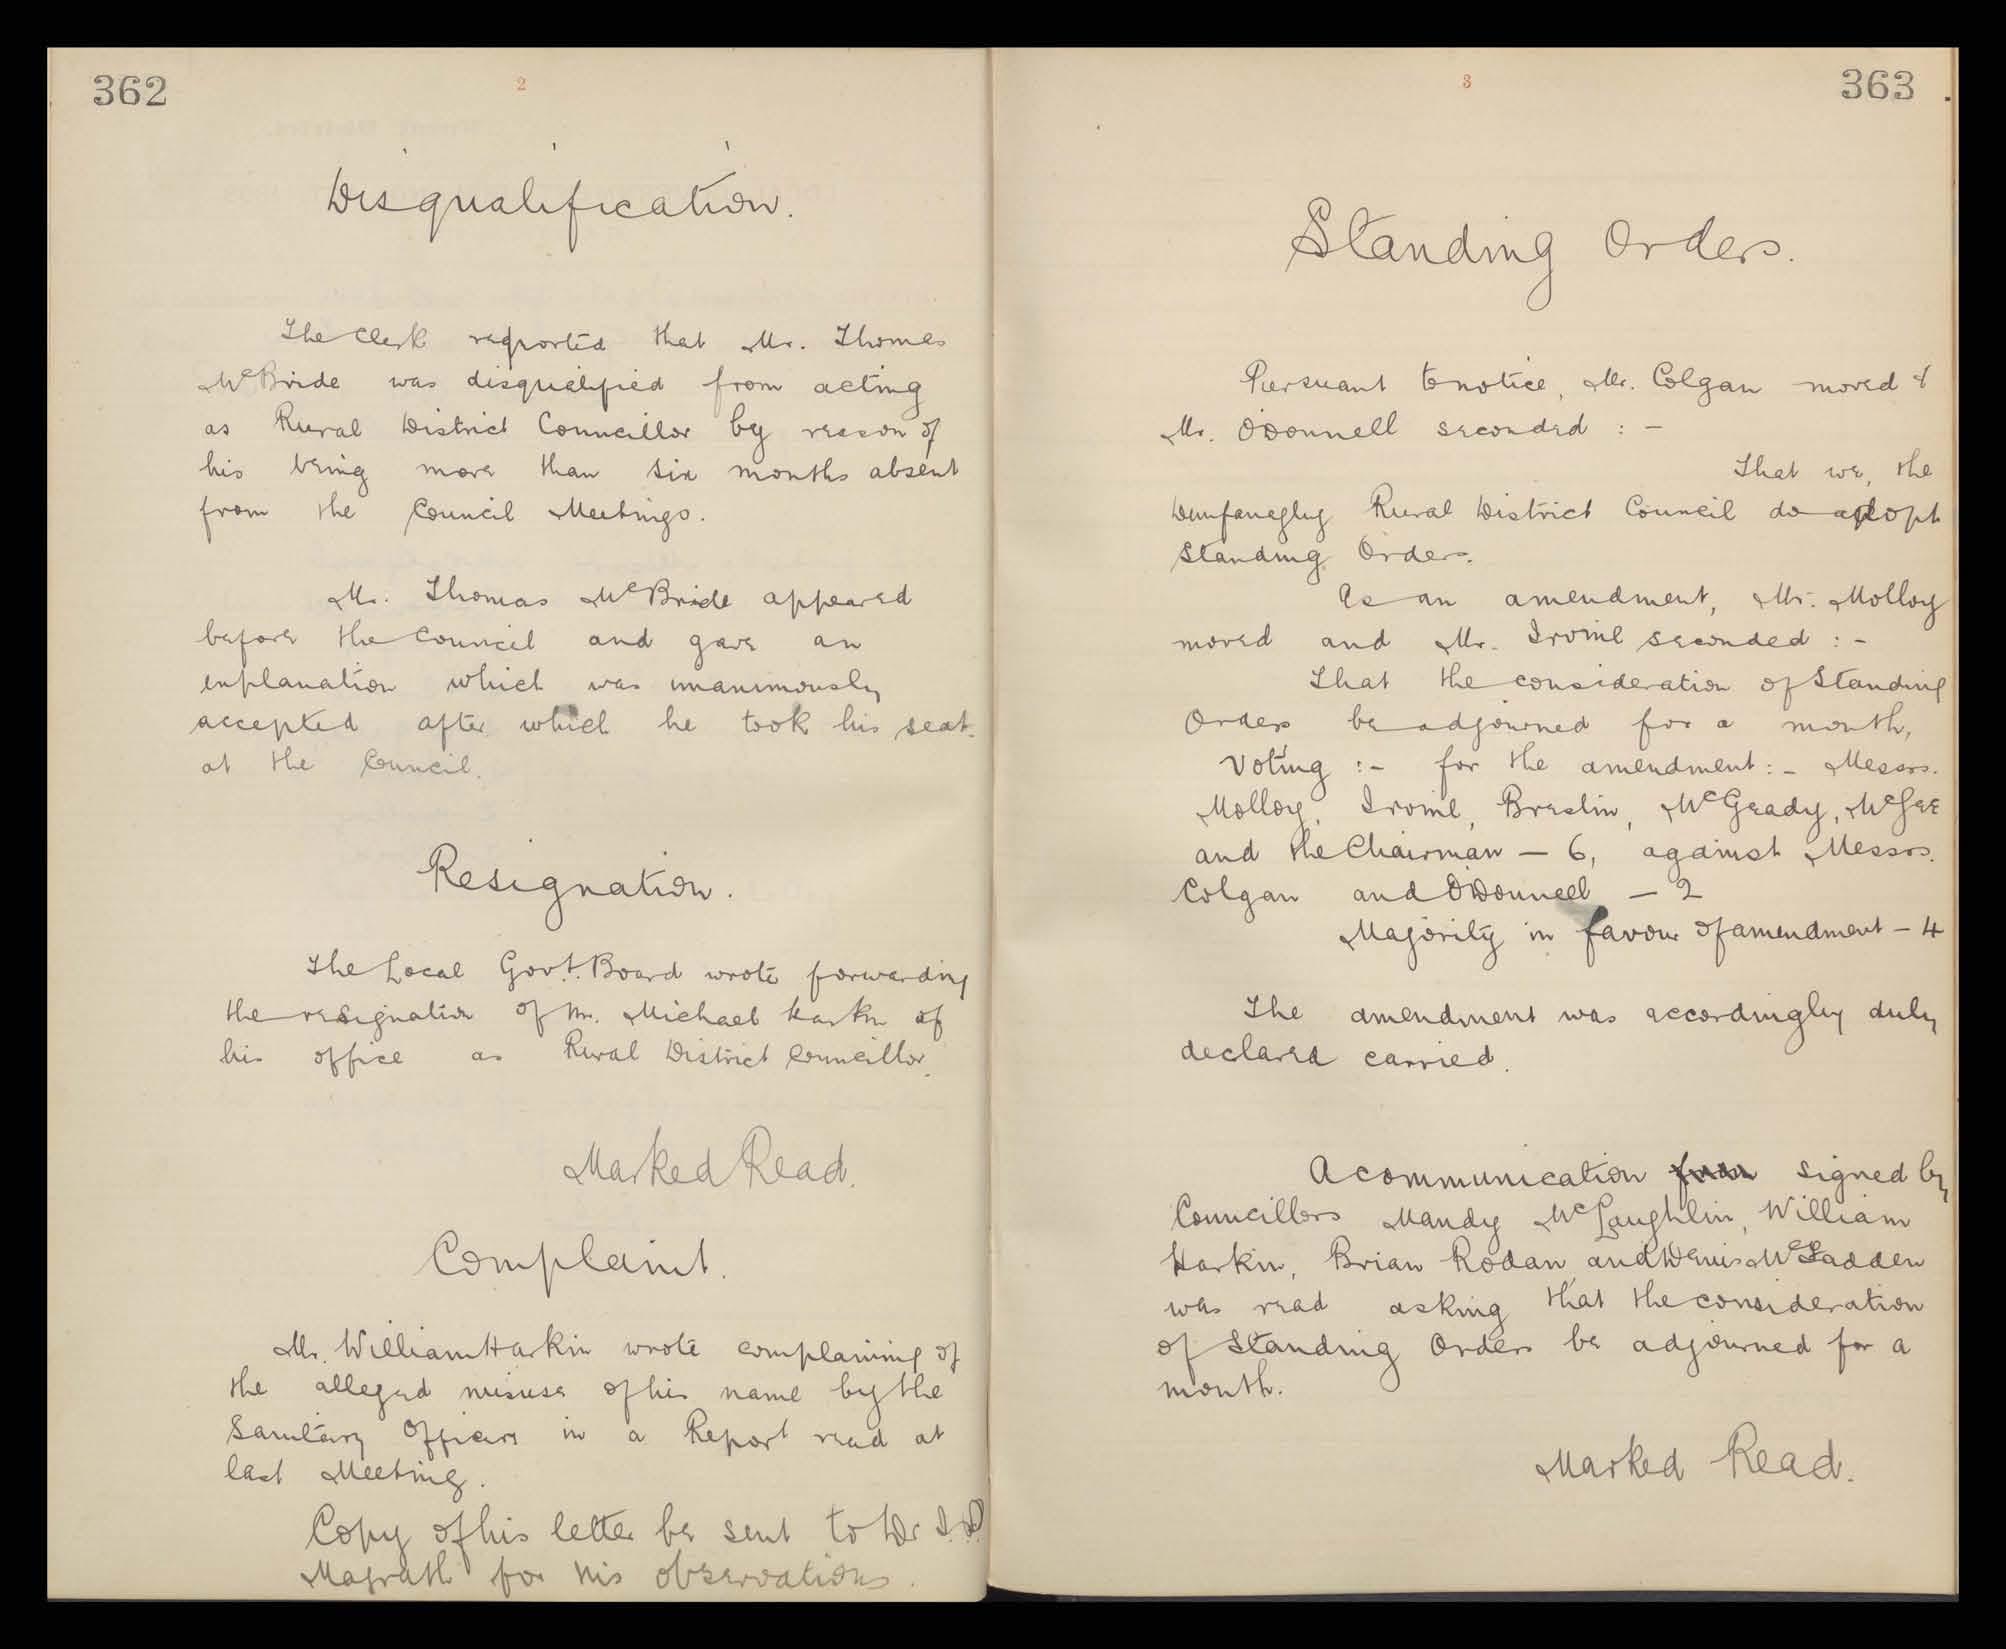 362
2
Disqualification.
The Clerk reported that Mr. Thomas
McBride was disqualified from acting
as Rural District Councillor by reason of
his being more than six months absent
from the Council Meetings.
Mr. Thomas McBride appeared
before the Council and gave an
explanation which was unanimously
accepted after which he took his seat
at the Council.
Resignation.
The Local Govt. Board wrote forwarding
the resignation of Mr. Michael Harkin of
his office as Rural District Councillor.
Marked Read.
Complaint.
Mr. William Harkin wrote complaining of
the alleged misuse of his name by the
Sanitary Officers in a Report read at
last Meeting.
Copy of his letter be sent to Dr
Magrath for his observations.
363
3
Standing Orders.
Pursuant to notice, Mr. Colgan moved &
Mr. O'Donnell seconded :-
That we, the
Dunfanaghy Rural District Council do adopt
Standing Orders.
As an amendment, Mr. Molloy
moved and Mr. Irvine seconded :-
That the consideration of Standing
Orders be adjourned for a month,
Voting :- for the amendment :- Messrs.
Molloy, Irvine, Breslin, McGeady, McGee
and the Chairman — 6, against Messrs.
Colgan and O'Donnell — 2
Majority in favour of amendment — 4
The amendment was accordingly duly
declared carried.
A communication from signed by
Councillors Mandy McLaughlin, William
Harkin, Brian Rodan and Denis McFadden
was read asking that the consideration
of Standing Orders be adjourned for a
month.
Marked Read.